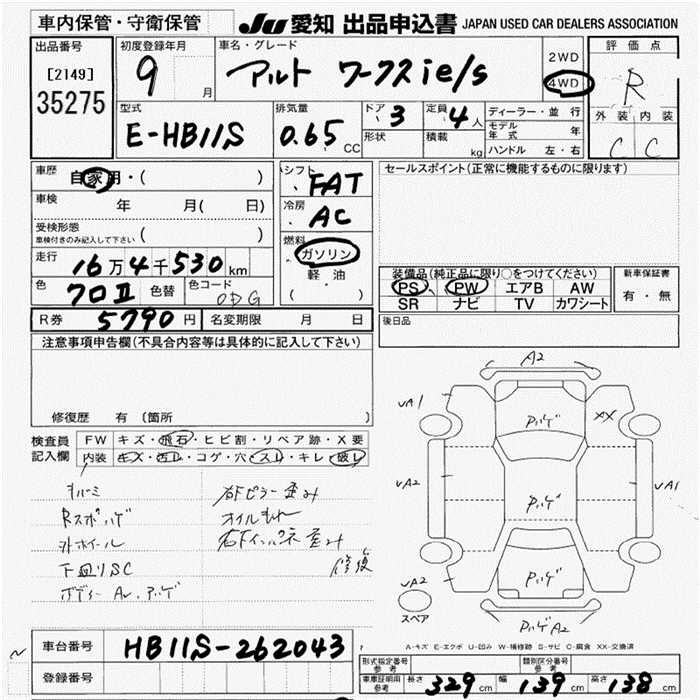 車内保管・守衛保管
JU 愛知 出品申込書 JAPAN USED CAR DEALERS ASSOCIATION
出品番号
[2149]
35275
初度登録年月
9 月
車名・グレード
アルト ワークスie/s
2WD
4WD
評価点
R
外装 内装
C C
型式
E-HB11S
排気量
0.65 CC
ドア 3
形状
定員 4 人
積載 kg
ディーラー・並行
モデル年式 年
ハンドル 左・右
車歴
自家用・( )
車検 年 月( 日)
受検形態
車検付きのみ記入して下さい ( )
走行 16万4千530km
色 クロⅡ 色替 色コード ODG
シフト FAT
冷房 AC
燃料
ガソリン
軽油
( )
セールスポイント(正常に機能するものに限ります)
装備品(純正品に限り○をつけてください)
PS PW エアB AW
SR ナビ TV カワシート
新車保証書
有・無
後日品
R券 5790円 名変期限 月 日
注意事項申告欄(不具合内容等は具体的に記入して下さい)
修復歴 有〔箇所
検査員記入欄
FW キズ・飛石・ヒビ割・リペア跡・X要
内装 生X・汚レ・コゲ・穴・スレ・キレ・破レ
キバミ 右Fピラー歪み
Rスポハゲ オイルもれ
外ホイール 右Fインパネ歪み
下廻りSC 修復
ボディー AU、アハゲ
A2
UA1
XX
Pハゲ
UA2
Pハゲ
UA1
UA2
Pハゲ
スペア
PハゲA2
A-キズ E-エクボ U-凹み W-補修跡 S-サビ C-腐食 XX-交換済
車台番号 HB11S-262043
登録番号
形式指定番号 参考
類別区分番号 参考
車庫証明用 参考 長さ 329cm 幅 139cm 高さ 138cm